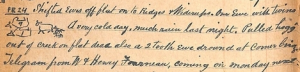 Fri 24. Shifted Ewes off flat on to Ridges & Widrups. One Ewe with Twins
A very cold day, much rain last night. Pulled Log
out of creek on flat dead also a 2 Tooth Ewe drowned at Corner
Telegram from W. & Henry coming on monday next